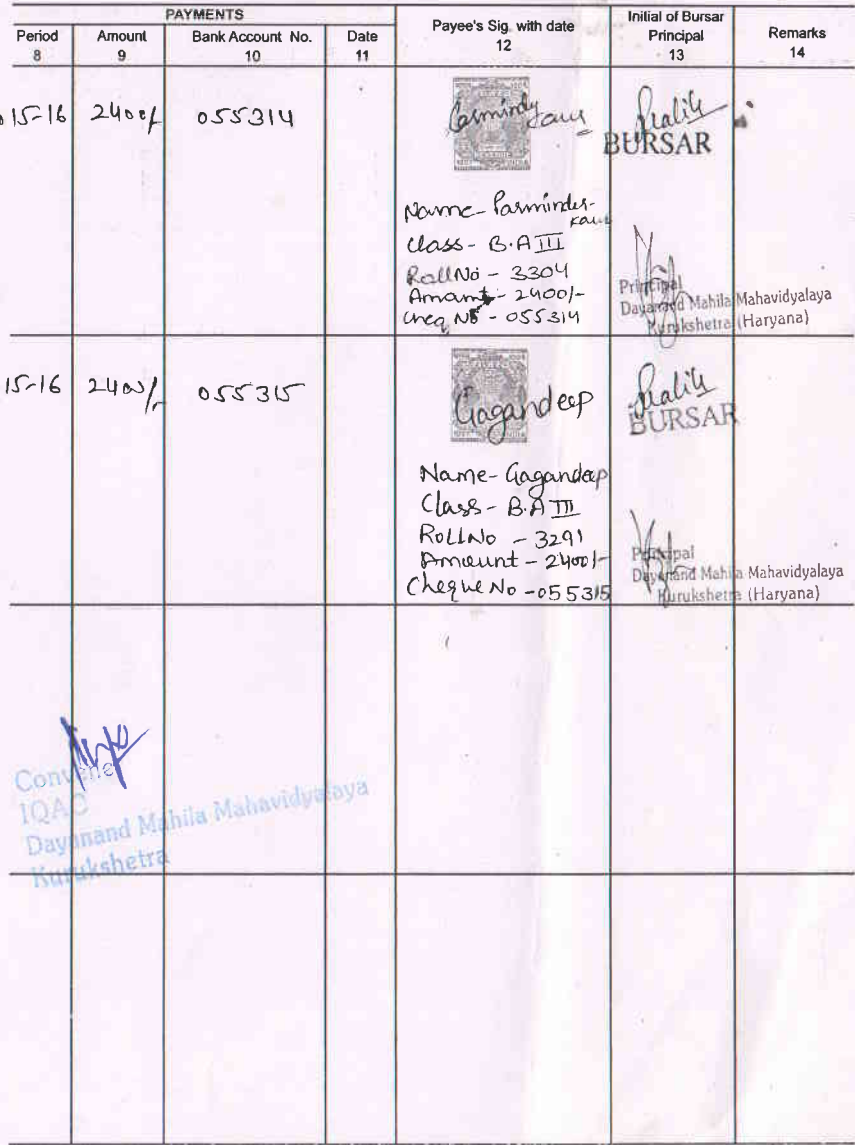 PAYMENTS
Period Amount Bank Account No. Date Payee's Sig. with date Initial of Bursar Principal Remarks
8 9 10 11 12 13 14
015-16 2400/- 055314
Parminder Kaur
BURSAR
Name- Parminder Kaur
Class- B.A III
Roll No - 3304
Amount - 2400/-
Cheq No - 055314
Principal
Dayanand Mahila Mahavidyalaya
Kurukshetra (Haryana)
15-16 2400/- 055315
Gagandeep
BURSAR
Name- Gagandeep
Class- B.A III
Roll No - 3291
Amount - 2400/-
Cheque No - 055315
Principal
Dayanand Mahila Mahavidyalaya
Kurukshetra (Haryana)
Convener
IQAC
Dayanand Mahila Mahavidyalaya
Kurukshetra